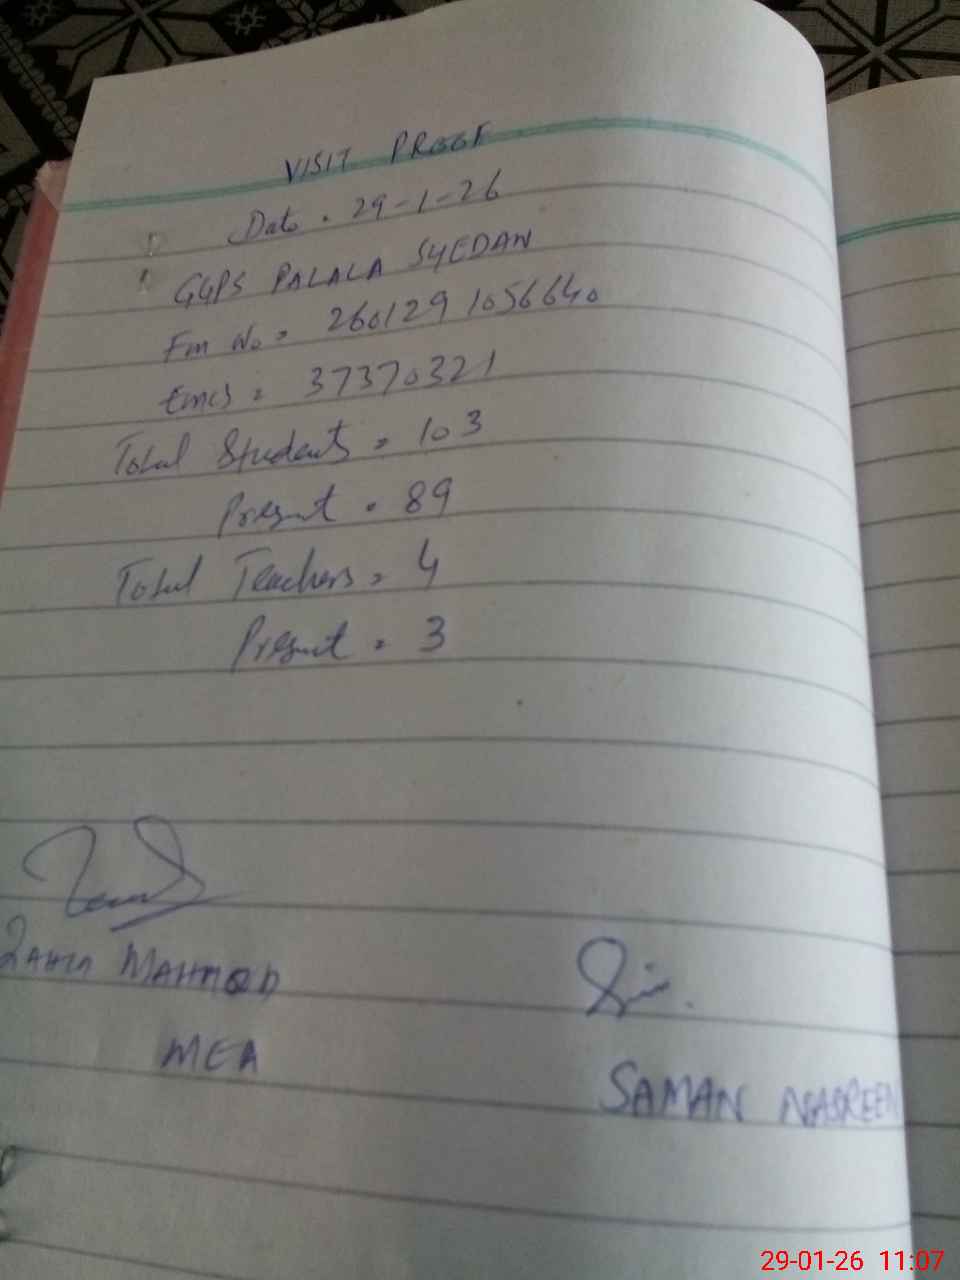 VISIT PROOF
Date = 29-1-26
GGPS PALALA SYEDAN
Fm No = 2601291056640
Emis = 37370321
Total Students = 103
Present = 89
Total Teachers = 4
Present = 3
MAHMOOD
MEA
SAMAN NASREEN
29-01-26 11:07